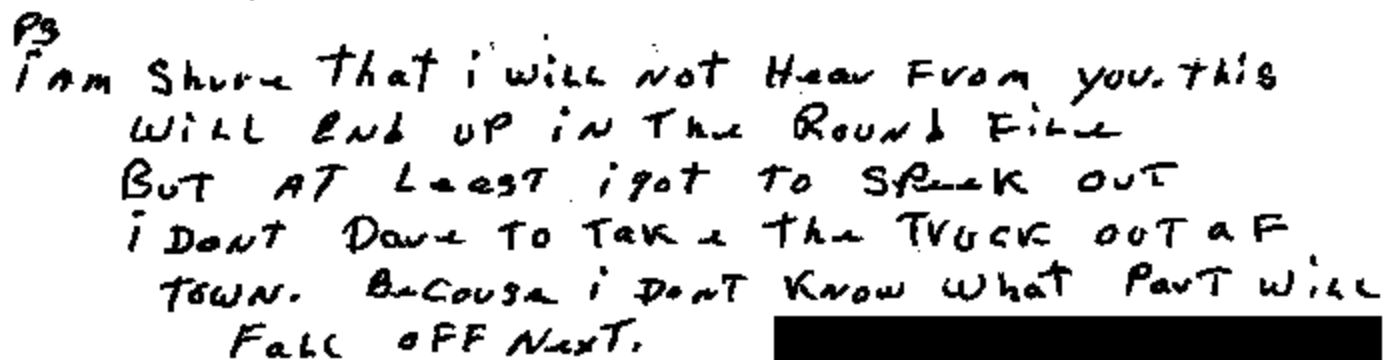 PS
i Am Shure that i will Not Hear From you. this
will End up in The Round File
But AT Least i got To Speek out
i Dont Dare To Take the Truck out aF
Town. Becouse i Dont Know what Part will
Fall oFF Next.